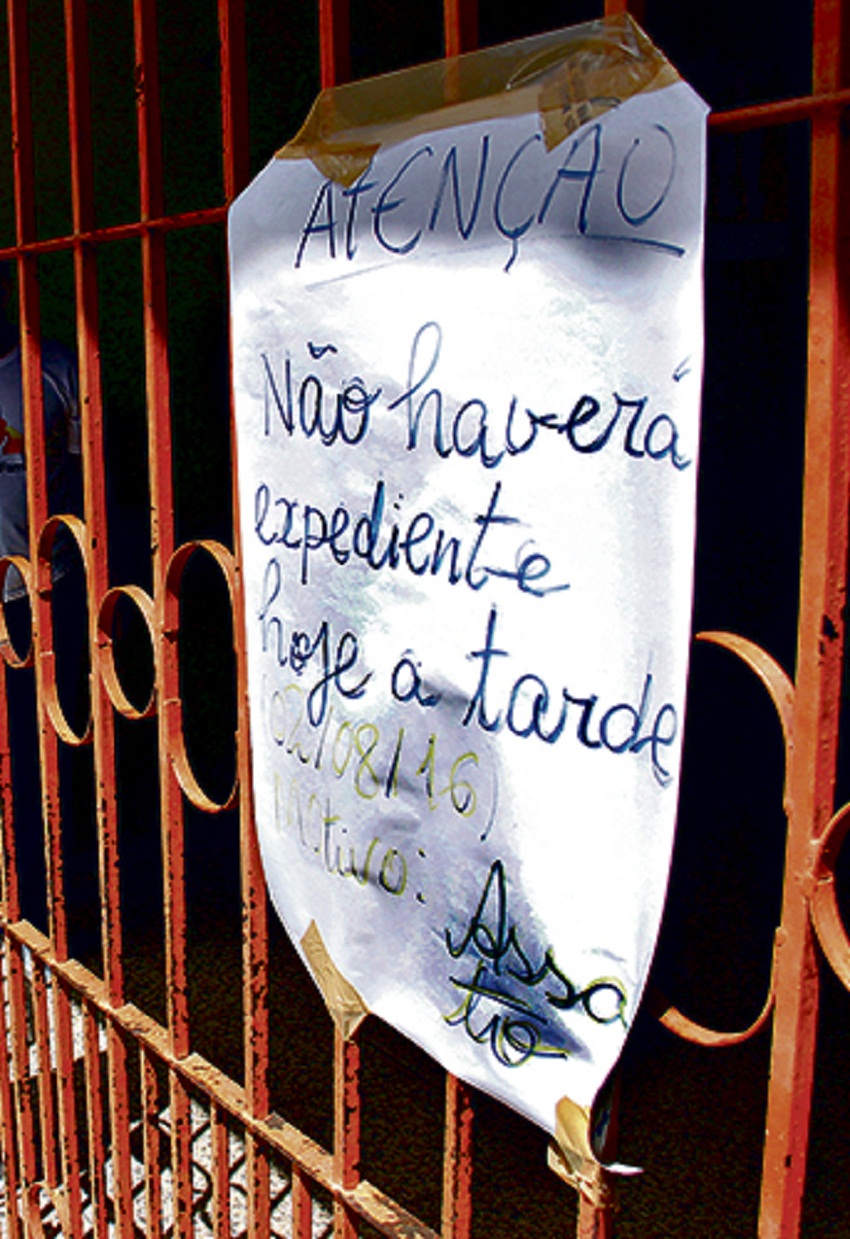 ATENÇAO
Não haverá
expediente
hoje a tarde
(02/08/16)
Motivo:
Assa
to